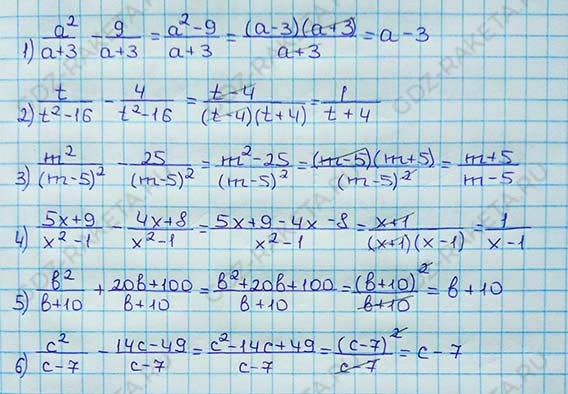 1) a²/(a+3) - 9/(a+3) = (a²-9)/(a+3) = ((a-3)(a+3))/(a+3) = a-3
2) t/(t²-16) - 4/(t²-16) = (t-4)/((t-4)(t+4)) = 1/(t+4)
3) m²/(m-5)² - 25/(m-5)² = (m²-25)/(m-5)² = ((m-5)(m+5))/(m-5)² = (m+5)/(m-5)
4) (5x+9)/(x²-1) - (4x+8)/(x²-1) = (5x+9-4x-8)/(x²-1) = (x+1)/((x+1)(x-1)) = 1/(x-1)
5) b²/(b+10) + (20b+100)/(b+10) = (b²+20b+100)/(b+10) = (b+10)²/(b+10) = b+10
6) c²/(c-7) - (14c-49)/(c-7) = (c²-14c+49)/(c-7) = (c-7)²/(c-7) = c-7
GDZ-RAKETA.RU